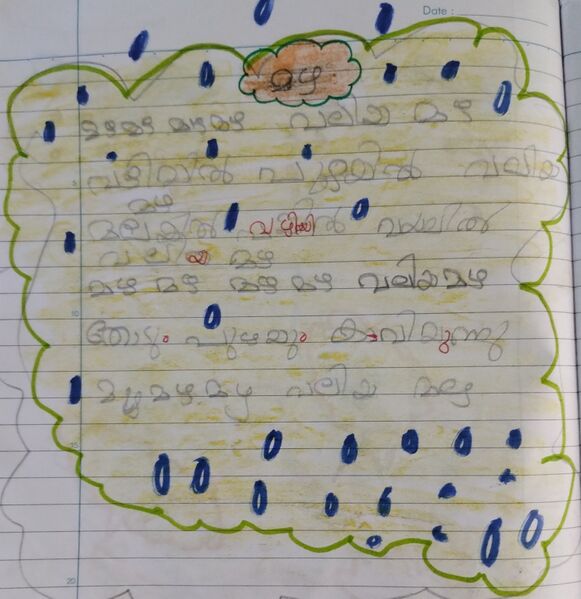 Date :
മഴ
മഴമഴ മഴമഴ വലിയ മഴ
വഴിയിൽ പുഴയിൽ വലിയ
മഴ
മലയിൽ വഴിയിൽ വയലിൽ
വലിയ മഴ
മഴ മഴ മഴ മഴ വലിയമഴ
തോടും പുഴയും കവിയുന്നു
മഴമഴമഴ വലിയ മഴ